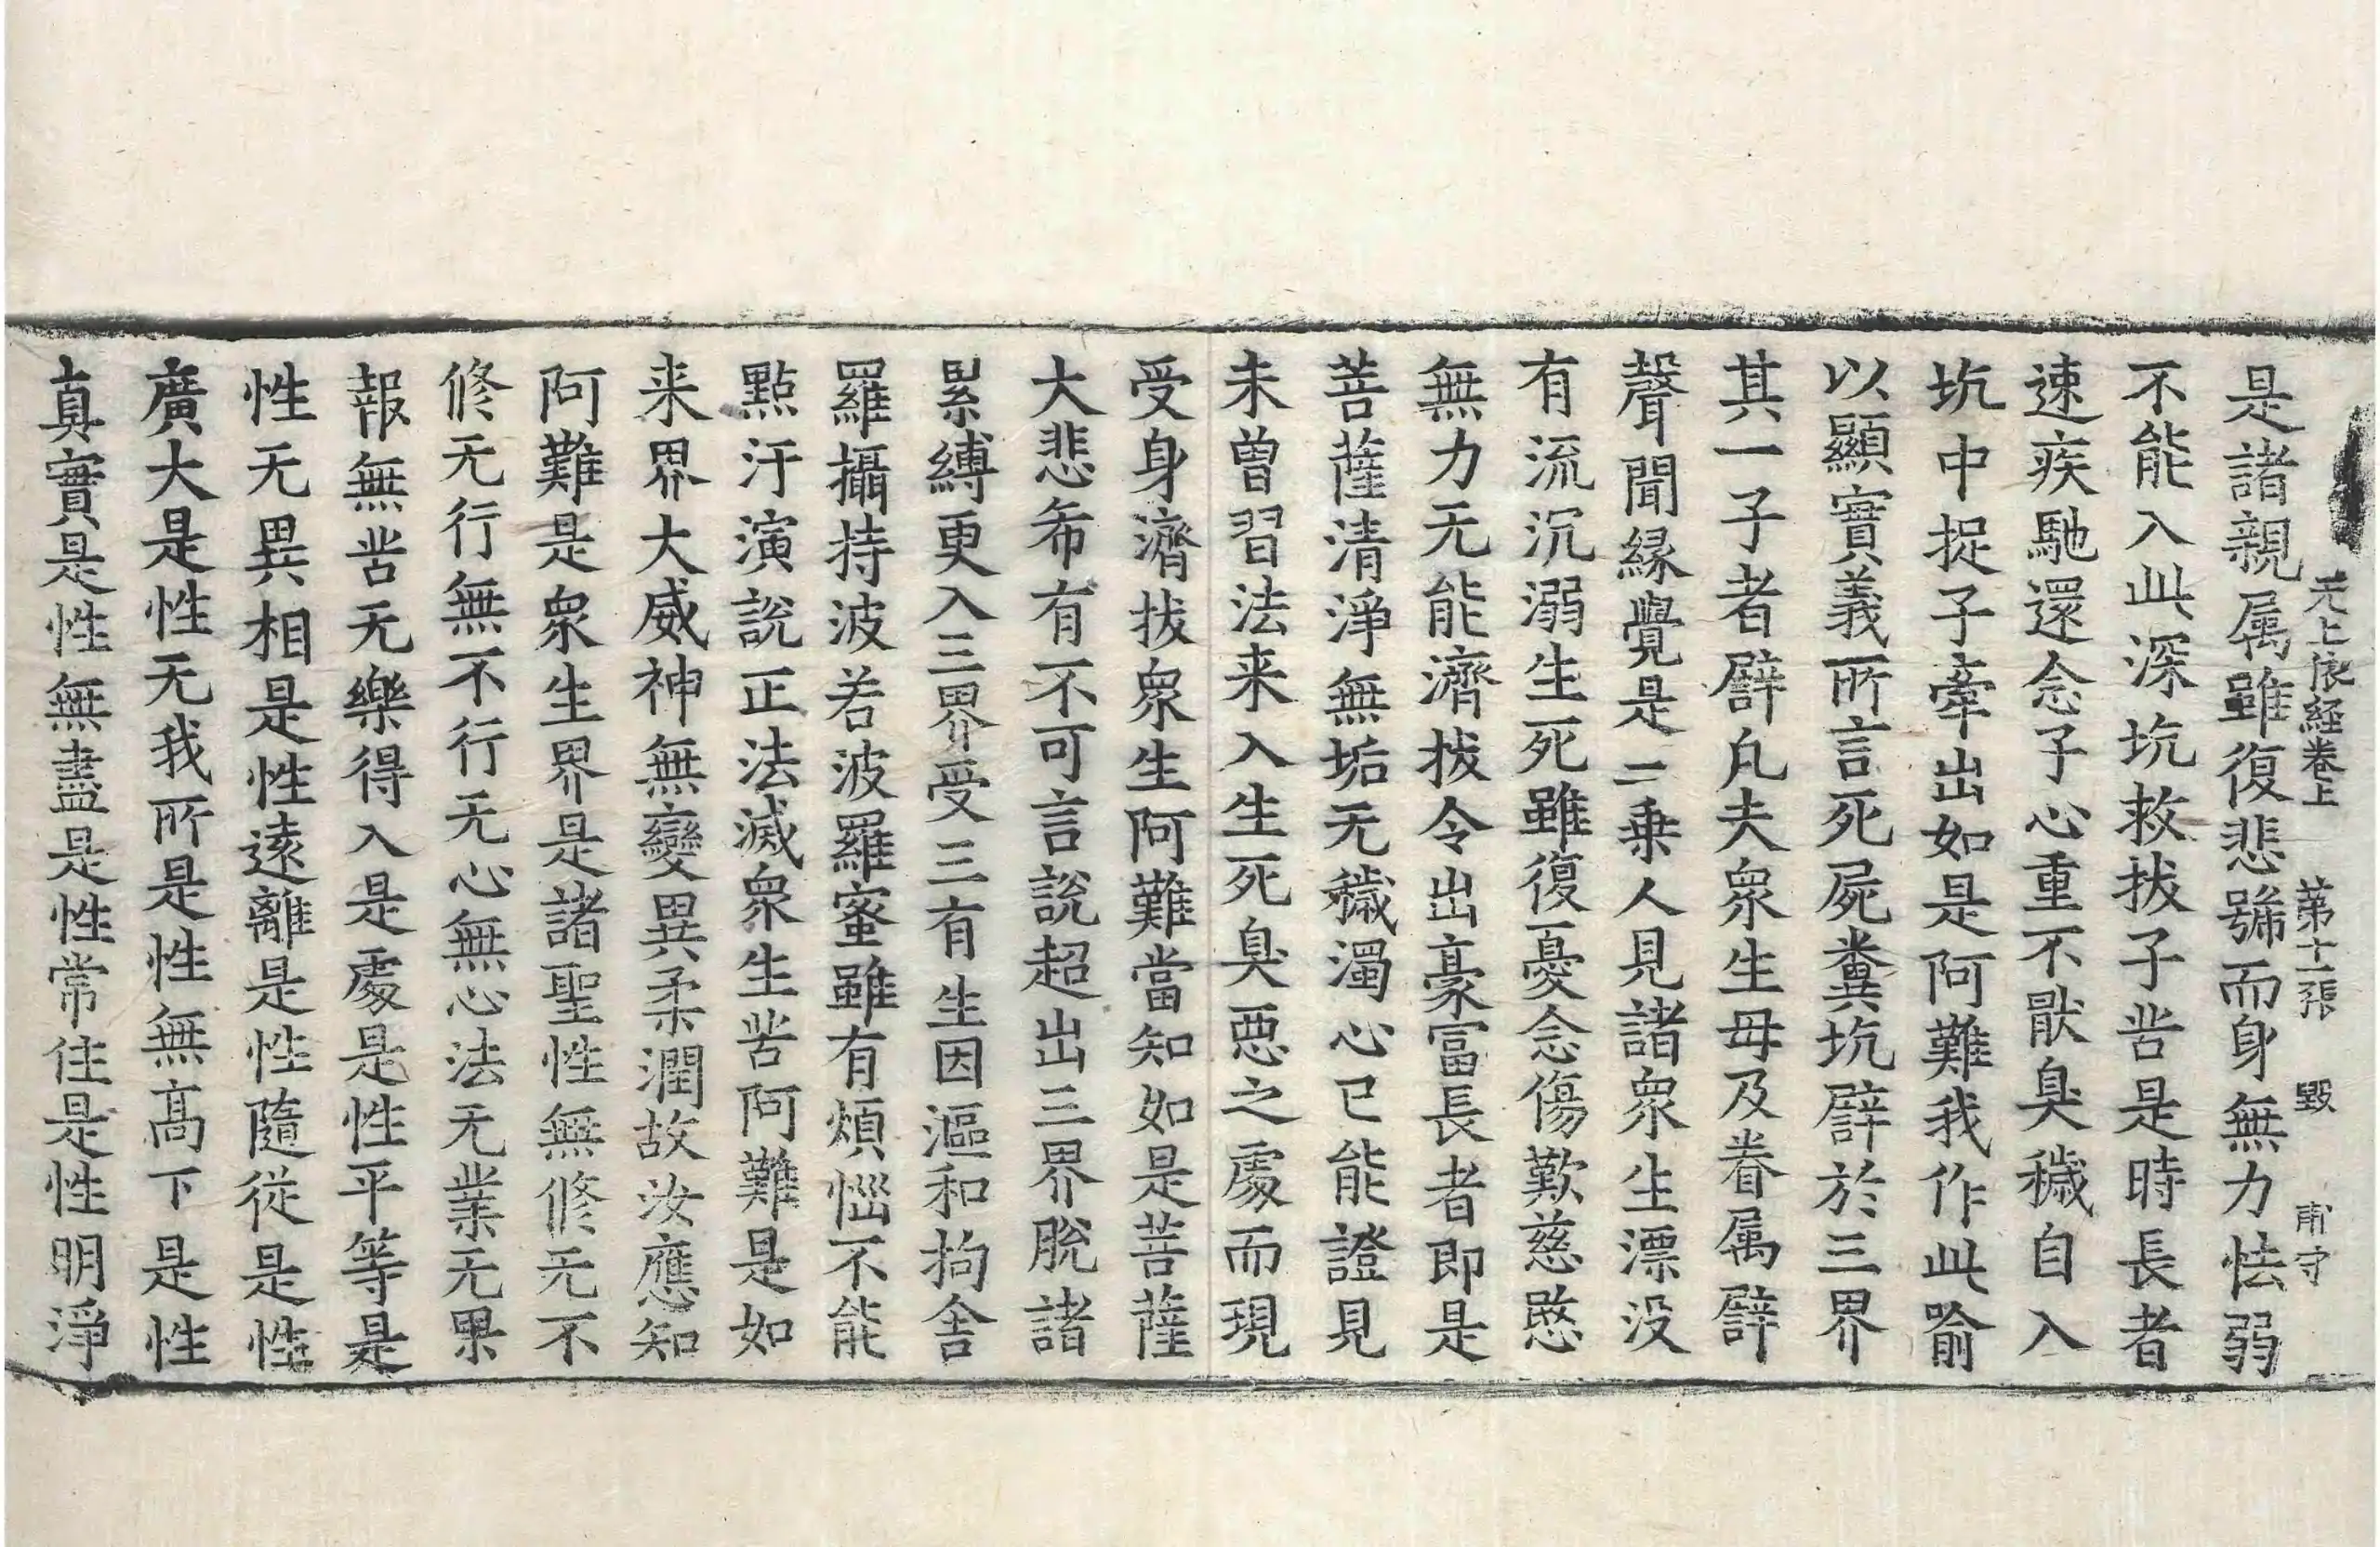 无上依経卷上 第十一張 毀 甫守
是諸親属雖復悲號而身無力怯弱
不能入此深坑救拔子苦是時長者
速疾馳還念子心重不猒臭穢自入
坑中捉子牽出如是阿難我作此喻
以顯實義所言死屍糞坑譬於三界
其一子者譬凡夫衆生母及眷属譬
聲聞緣覺是二乗人見諸衆生漂没
有流沉溺生死雖復憂念傷歎慈愍
無力无能濟拔令出豪冨長者即是
菩薩清淨無垢无穢濁心已能證見
未曽習法来入生死臭惡之處而現
受身濟拔衆生阿難當知如是菩薩
大悲希有不可言說超出三界脫諸
累縛更入三界受三有生因漚和拘舍
羅攝持波若波羅蜜雖有煩惱不能
點汙演說正法滅衆生苦阿難是如
来界大威神無變異柔潤故汝應知
阿難是衆生界是諸聖性無修无不
修无行無不行无心無心法无業无果
報無苦无樂得入是處是性平等是
性无異相是性遠離是性隨從是性
廣大是性无我所是性無髙下是性
真實是性無盡是性常住是性明淨